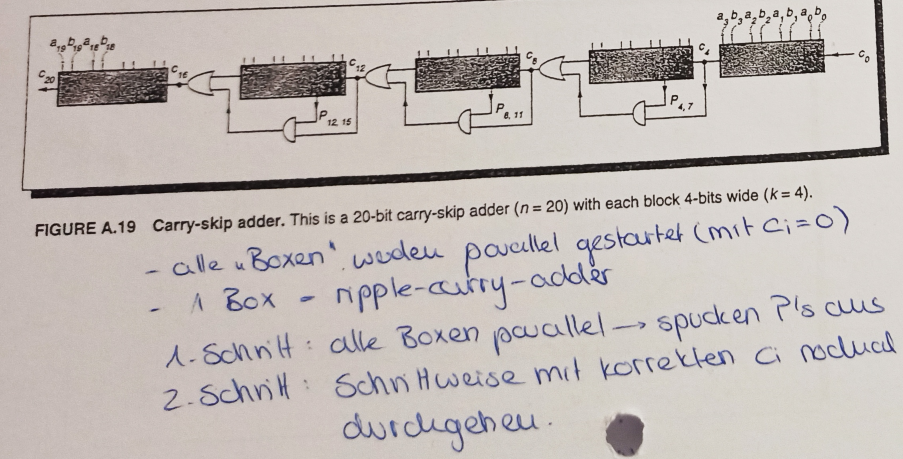 a₃b₃a₂b₂a₁b₁a₀b₀
a₁₉b₁₉a₁₈b₁₈
c₂₀ c₁₆ c₁₂ c₈ c₄ c₀
P₁₂,₁₅ P₈,₁₁ P₄,₇
FIGURE A.19 Carry-skip adder. This is a 20-bit carry-skip adder (n = 20) with each block 4-bits wide (k = 4).
- alle „Boxen" werden parallel gestartet (mit Ci=0)
- 1 Box = ripple-carry-adder
1. Schritt: alle Boxen parallel → spucken P's aus
2. Schritt: Schrittweise mit korrekten Ci nochmal
durchgehen.